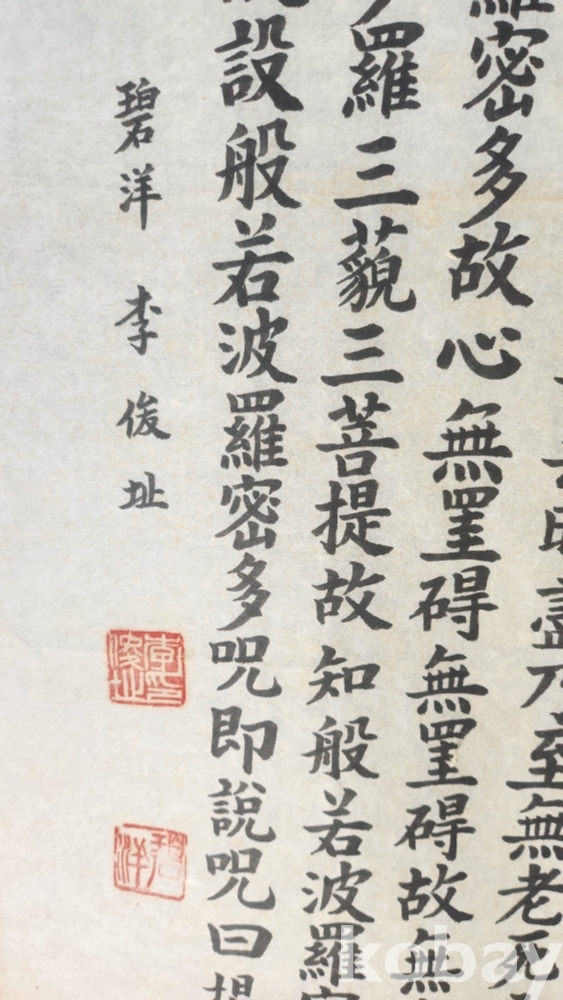 盡乃至無老死
羅密多故心無罣碍無罣碍故無
羅三藐三菩提故知般若波羅
說設般若波羅密多呪即說呪曰揭
碧洋 李俊址
李俊址印
碧洋
kobay